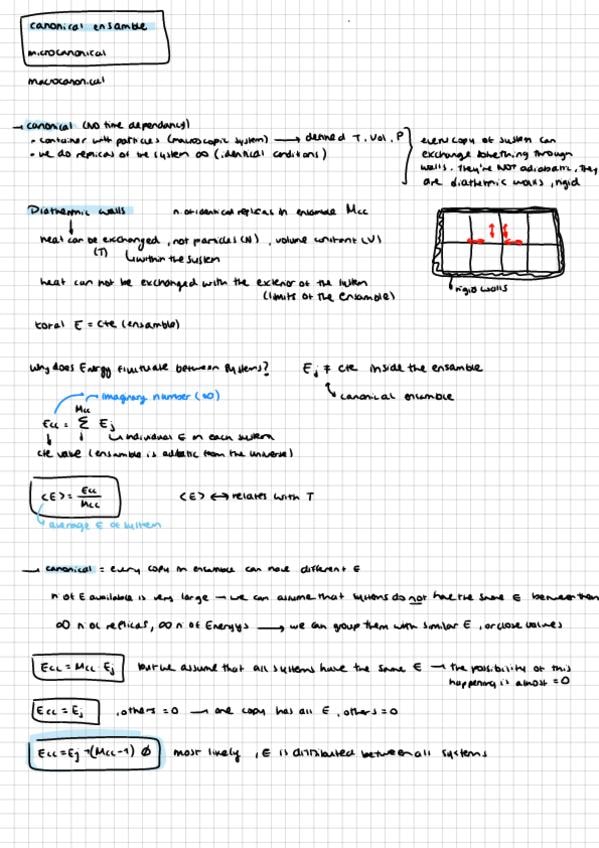 canonical ensamble
microcanonical
macrocanonical
→ canonical (NO time dependancy)
• container with particles (macroscopic system) → defined T, Vol, P
• we do replicas of the system ∞ (identical conditions)
every copy of system can
exchange something through
walls. They're NOT adiabatic, they
are diathermic walls, rigid
Diathermic walls n. of identical replicas in ensamble Mcc
heat can be exchanged, not particles (N), volume constant (V)
(T) within the system
heat can not be exchanged with the exterior of the system
(limits of the ensamble)
rigid walls
total E = cte (ensamble)
Why does Energy fluctuate between systems? Ej ≠ cte inside the ensamble
canonical ensamble
imaginary number (∞)
Ecc = Σ Ej
Mcc
j
individual E in each system
cte value (ensamble is adibatic from the universe)
<E> = Ecc / Mcc <E> ↔ relates with T
average E of system
→ canonical = every copy in ensamble can have different E
nº of E available is very large → we can assume that systems do not have the same E between them
∞ nº of replicas, ∞ nº of Energys → we can group them with similar E, or close values
Ecc = Mcc · Ej but we assume that all systems have the same E → the possibility of this
happening is almost = 0
Ecc = Ej , others = 0 → one copy has all E, others = 0
Ecc = Ej + (Mcc-1) ϕ most likely, E is distributed between all systems